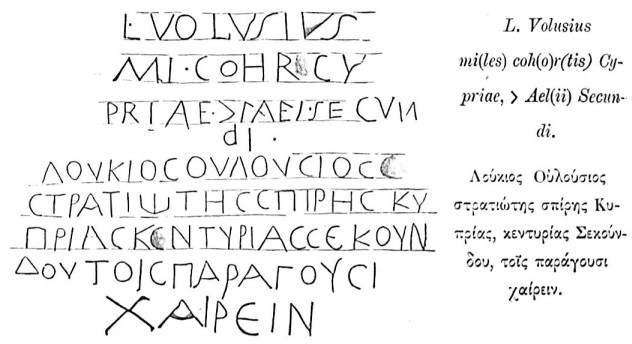 L·VOLUSIVS
MI·COHR CY
PRIAE·>IAEI·SECVN
dI·
ΛΟΥΚΙΟϹΟΥΛΟΥϹΙΟϹϹ
ϹΤΡΑΤΙΨΤΗϹϹΠΙΡΗϹΚΥ
ΠΡΙΑϹΚΕΝΤΥΡΙΑϹϹΕΚΟΥΝ
ΔΟΥΤΟΙϹΠΑΡΑΓΟΥϹΙ
ΧΑΙΡΕΙΝ
L. Volusius
mi(les) coh(o)r(tis) Cy-
priae, > Ael(ii) Secun-
di.
Λούκιος Οὐλούσιος
στρατιώτης σπίρης Κυ-
πρίας, κεντυρίας Σεκούν-
δου, τοῖς παράγουσι
χαίρειν.